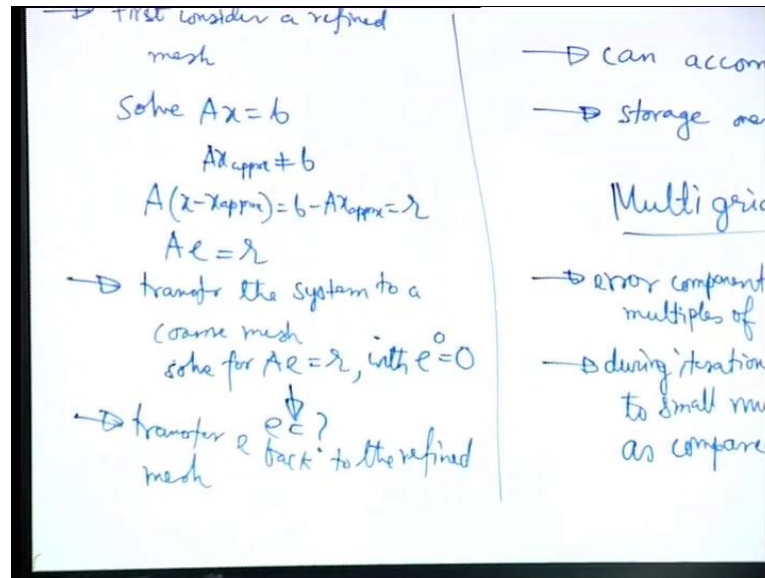 → first consider a refined
mesh
Solve Ax = b
Ax appx ≠ b
A(x - x appx) = b - Ax appx = r
Ae = r
→ transfr the system to a
coarse mesh
solve for Ae = r, with e⁰ = 0
↓
e = ?
→ transfer e back to the refined
mesh
→ can accom
→ storage
Multi grid
→ error component
multiples of
→ during iteration
to small mu
as compare